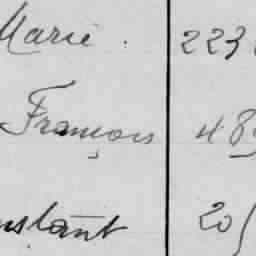 Marie. 223
François 48
nstant 20